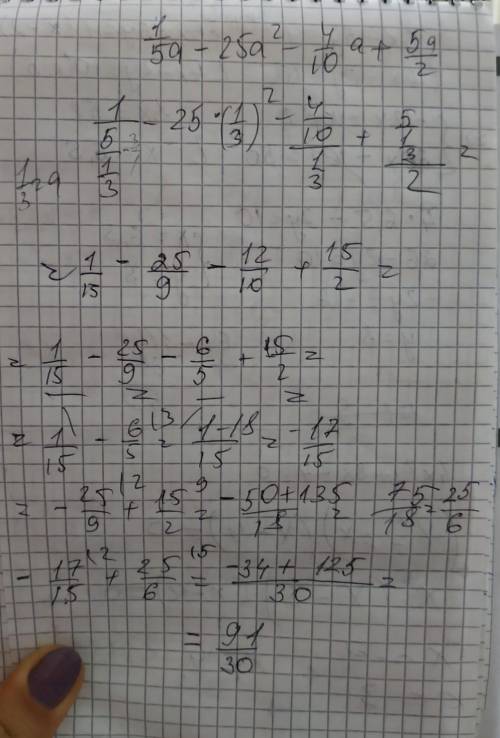 1/5a - 25a² - 4/10 a + 5a/2
1/(5/(1/3)) - 25 · (1/3)² - (4/10)/(1/3) + (5/(1/3))/2 =
1/3 = a
= 1/15 - 25/9 - 12/10 + 15/2 =
= 1/15 - 25/9 - 6/5 + 15/2 =
= 1/15 - 6/5 \3 = 1-18/15 = -17/15
= -25/9 \2 + 15/2 \9 = -50+135/18 = 75/18 = 25/6
-17/15 \2 + 25/6 \5 = -34+125/30 =
= 91/30